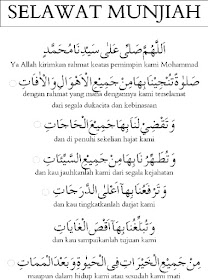 SELAWAT MUNJIAH
اَللّٰهُمَّ صَلِّ عَلٰى سَيِّدِنَا مُحَمَّدٍ
Ya Allah kirimkan rahmat keatas pemimpin kami Mohammad
صَلٰوةً تُنْجِيْنَا بِهَا مِنْ جَمِيْعِ الْاَهْوَالِ وَالْاٰفَاتِ
dengan rahmat yang mana dengannya kami terselamat
dari segala dukacita dan kebinasaan
وَتَقْضِيْ لَنَا بِهَا جَمِيْعَ الْحَاجَاتِ
dan di penuhi sekelian hajat kami
وَتُطَهِّرُنَا بِهَا مِنْ جَمِيْعِ السَّيِّئَاتِ
dan kau jauhkanlah kami dari segala kejahatan
وَتَرْفَعُنَا بِهَا اَعْلَى الدَّرَجَاتِ
dan kau tingkatkanlah darjat kami
وَتُبَلِّغُنَا بِهَا اَقْصَى الْغَايَاتِ
dan kau sampaikanlah tujuan kami
مِنْ جَمِيْعِ الْخَيْرَاتِ فِى الْحَيٰوةِ وَبَعْدَ الْمَمَاتِ
maupun dalam hidup kami atau sesudah kami mati